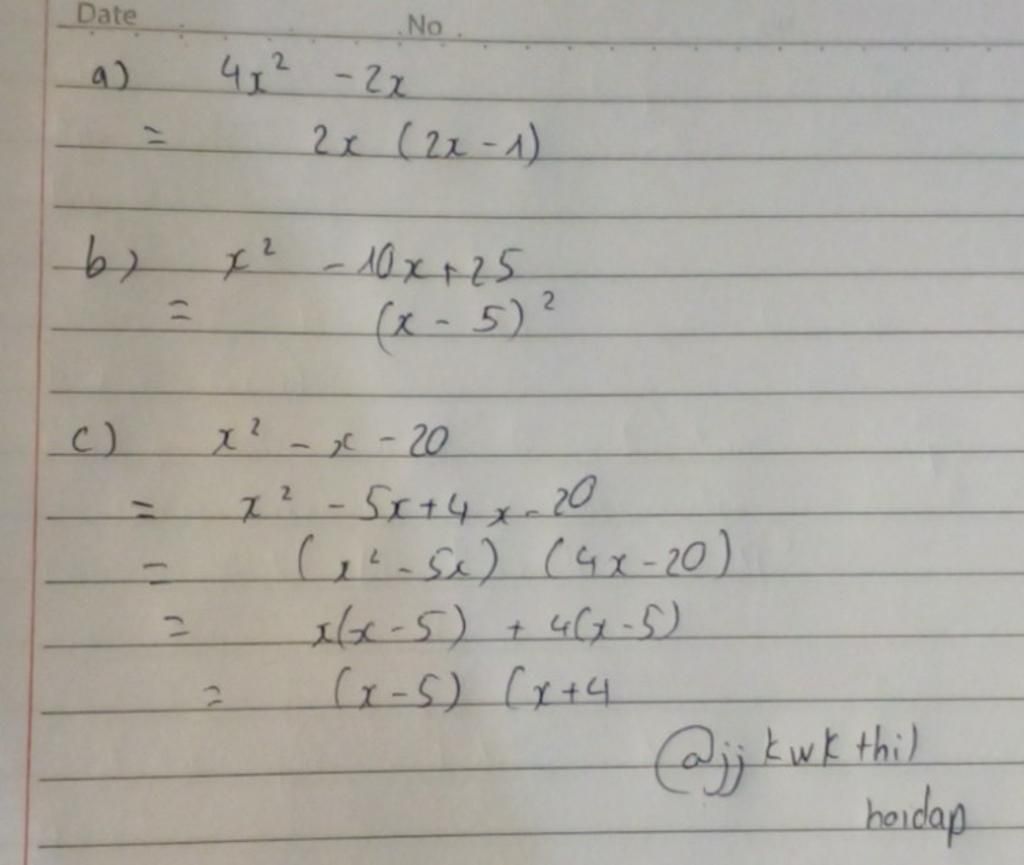 Date No.
a) 4x² - 2x
= 2x (2x - 1)
b) x² - 10x + 25
= (x - 5)²
c) x² - x - 20
= x² - 5x + 4x - 20
= (x² - 5x) (4x - 20)
= x(x - 5) + 4(x - 5)
= (x - 5) (x + 4
@jj kwk thil
hoidap